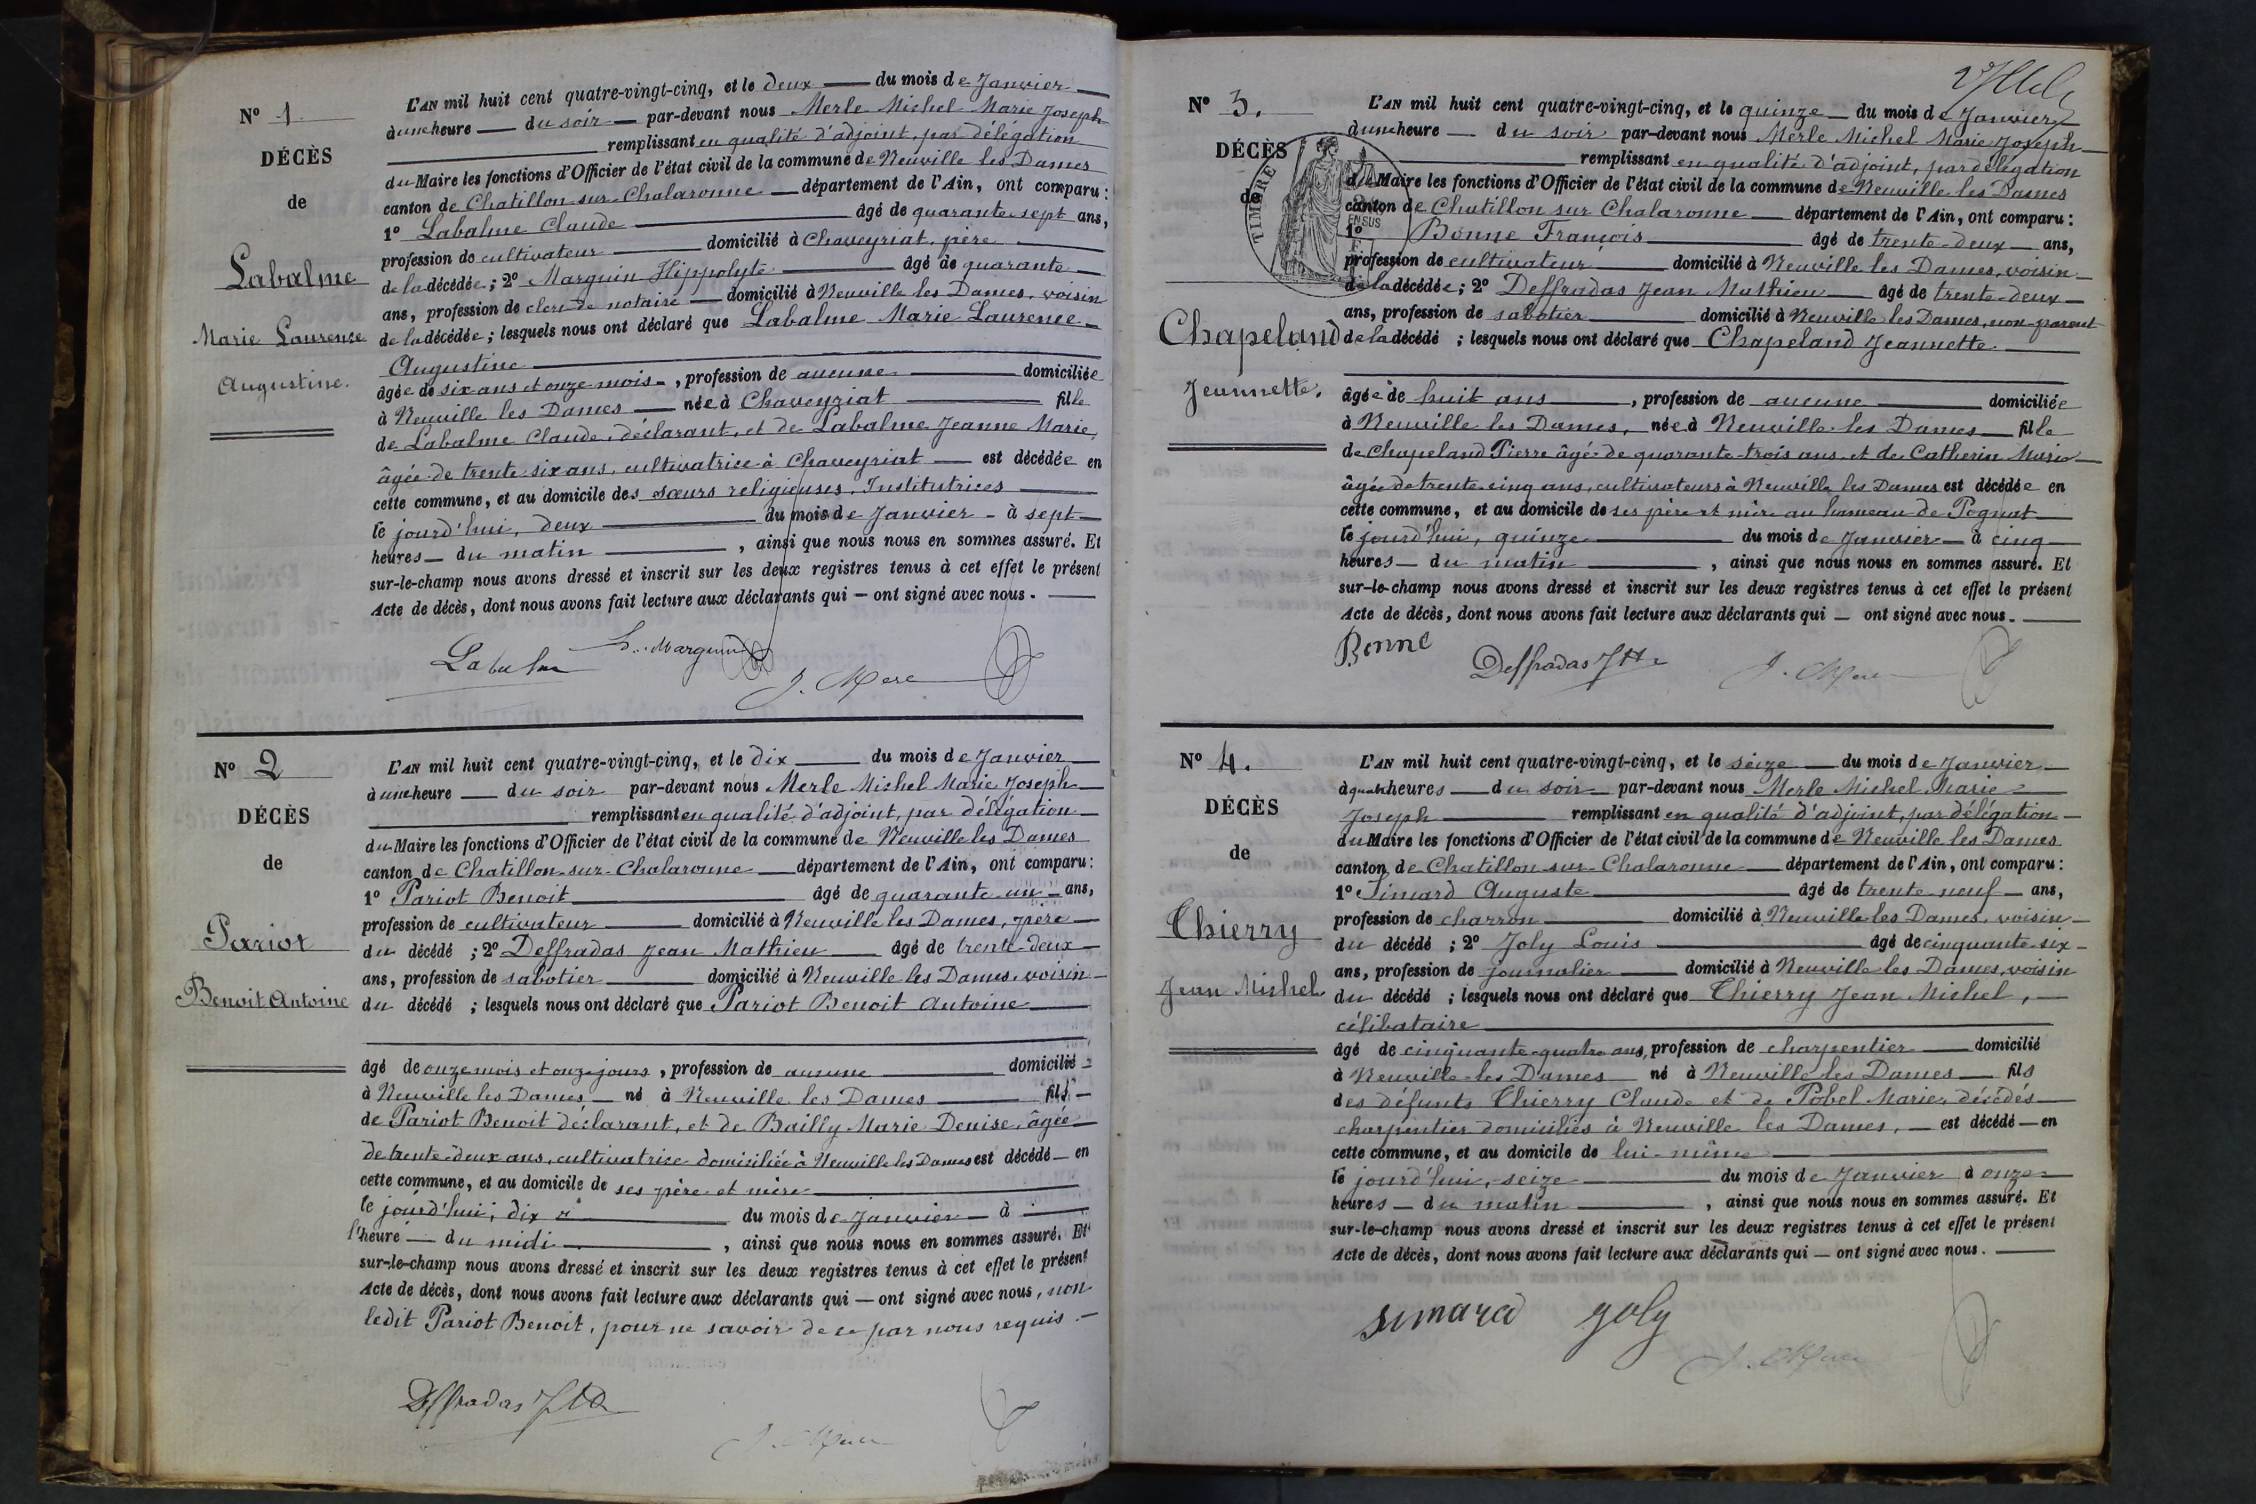 N° 1
DÉCÈS
de
Labalme
Marie Laurence
Augustine.
L'AN mil huit cent quatre-vingt-cinq, et le deux du mois de Janvier
à une heure du soir par-devant nous Merle Michel Marie Joseph
remplissant en qualité d'adjoint, par délégation
du Maire les fonctions d'Officier de l'état civil de la commune de Neuville les Dames
canton de Chatillon sur Chalaronne département de l'Ain, ont comparu :
1° Labalme Claude âgé de quarante sept ans,
profession de cultivateur domicilié à Chaveyriat, père
de la décédée ; 2° Marguin Hippolyte âgé de quarante
ans, profession de clerc de notaire domicilié à Neuville les Dames, voisin
de la décédée ; lesquels nous ont déclaré que Labalme Marie Laurence
Augustine
âgée de six ans et onze mois, profession de aucune domiciliée
à Neuville les Dames née à Chaveyriat fille
de Labalme Claude, déclarant, et de Labalme Jeanne Marie,
âgée de trente six ans, cultivatrice à Chaveyriat est décédée en
cette commune, et au domicile des sœurs religieuses, Institutrices
le jourd'hui, deux du mois de Janvier à sept
heures du matin , ainsi que nous nous en sommes assuré. Et
sur-le-champ nous avons dressé et inscrit sur les deux registres tenus à cet effet le présent
Acte de décès, dont nous avons fait lecture aux déclarants qui ont signé avec nous.
Labalme Marguin
N° 2
DÉCÈS
de
Pariot
Benoit Antoine
L'AN mil huit cent quatre-vingt-cinq, et le dix du mois de Janvier
à une heure du soir par-devant nous Merle Michel Marie Joseph
remplissant en qualité d'adjoint, par délégation
du Maire les fonctions d'Officier de l'état civil de la commune de Neuville les Dames
canton de Chatillon sur Chalaronne département de l'Ain, ont comparu :
1° Pariot Benoit âgé de quarante un ans,
profession de cultivateur domicilié à Neuville les Dames, père
du décédé ; 2° Deffradas Jean Mathieu âgé de trente-deux
ans, profession de sabotier domicilié à Neuville les Dames, voisin
du décédé ; lesquels nous ont déclaré que Pariot Benoit Antoine
âgé de onze mois et onze jours, profession de aucune domicilié
à Neuville les Dames né à Neuville les Dames fils
de Pariot Benoit déclarant, et de Bailly Marie Denise, âgée
de trente-deux ans, cultivatrice domiciliée à Neuville les Dames est décédé en
cette commune, et au domicile de ses père et mère
le jourd'hui, dix du mois de Janvier à
l'heure du midi , ainsi que nous nous en sommes assuré. Et
sur-le-champ nous avons dressé et inscrit sur les deux registres tenus à cet effet le présent
Acte de décès, dont nous avons fait lecture aux déclarants qui ont signé avec nous, non
ledit Pariot Benoit, pour ne savoir de ce par nous requis.
Deffradas
N° 3.
DÉCÈS
de
TIMBRE
EN SUS
Chapeland
Jeannette.
L'AN mil huit cent quatre-vingt-cinq, et le quinze du mois de Janvier
à une heure du soir par-devant nous Merle Michel Marie Joseph
remplissant en qualité d'adjoint, par délégation
du Maire les fonctions d'Officier de l'état civil de la commune de Neuville les Dames
canton de Chatillon sur Chalaronne département de l'Ain, ont comparu :
1° Bonne François âgé de trente-deux ans,
profession de cultivateur domicilié à Neuville les Dames, voisin
de la décédée ; 2° Deffradas Jean Mathieu âgé de trente-deux
ans, profession de sabotier domicilié à Neuville les Dames, non parent
de la décédé ; lesquels nous ont déclaré que Chapeland Jeannette.
âgée de huit ans , profession de aucune domiciliée
à Neuville les Dames, née à Neuville les Dames fille
de Chapeland Pierre âgé de quarante-trois ans et de Catherin Marie
âgée de trente cinq ans, cultivateurs à Neuville les Dames est décédée en
cette commune, et au domicile de ses père et mère au hameau de Pognat
le jourd'hui, quinze du mois de Janvier à cinq
heures du matin , ainsi que nous nous en sommes assuré. Et
sur-le-champ nous avons dressé et inscrit sur les deux registres tenus à cet effet le présent
Acte de décès, dont nous avons fait lecture aux déclarants qui ont signé avec nous.
Bonne Deffradas
N° 4.
DÉCÈS
de
Thierry
Jean Michel
L'AN mil huit cent quatre-vingt-cinq, et le seize du mois de Janvier
à quatre heures du soir par-devant nous Merle Michel Marie
Joseph remplissant en qualité d'adjoint, par délégation
du Maire les fonctions d'Officier de l'état civil de la commune de Neuville les Dames
canton de Chatillon sur Chalaronne département de l'Ain, ont comparu :
1° Simard Auguste âgé de trente neuf ans,
profession de charron domicilié à Neuville les Dames, voisin
du décédé ; 2° Joly Louis âgé de cinquante-six
ans, profession de journalier domicilié à Neuville les Dames, voisin
du décédé ; lesquels nous ont déclaré que Thierry Jean Michel,
célibataire
âgé de cinquante-quatre ans, profession de charpentier domicilié
à Neuville-les Dames né à Neuville les Dames fils
des défunts Thierry Claude et de Pobel Marie, décédés
charpentier domiciliés à Neuville les Dames, est décédé en
cette commune, et au domicile de lui-même
le jourd'hui, seize du mois de Janvier à onze
heures du matin , ainsi que nous nous en sommes assuré. Et
sur-le-champ nous avons dressé et inscrit sur les deux registres tenus à cet effet le présent
Acte de décès, dont nous avons fait lecture aux déclarants qui ont signé avec nous.
Simard Joly